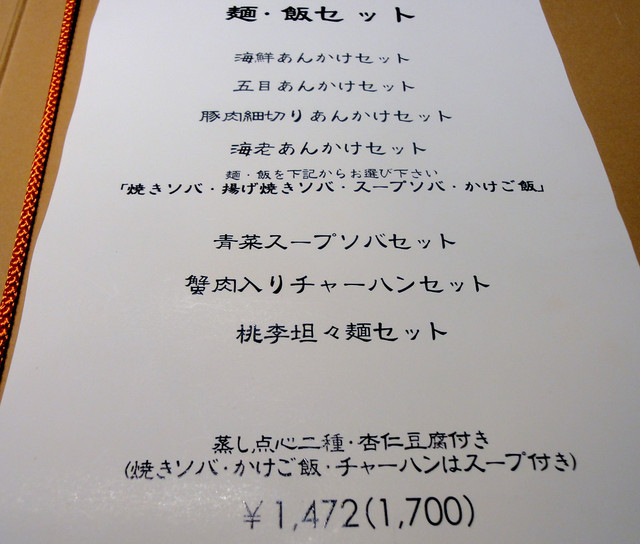 麺・飯セット
海鮮あんかけセット
五目あんかけセット
豚肉細切りあんかけセット
海老あんかけセット
麺・飯を下記からお選び下さい
「焼きソバ・揚げ焼きソバ・スープソバ・かけご飯」
青菜スープソバセット
蟹肉入りチャーハンセット
桃李坦々麺セット
蒸し点心二種・杏仁豆腐付き
(焼きソバ・かけご飯・チャーハンはスープ付き)
￥1,472(1,700)